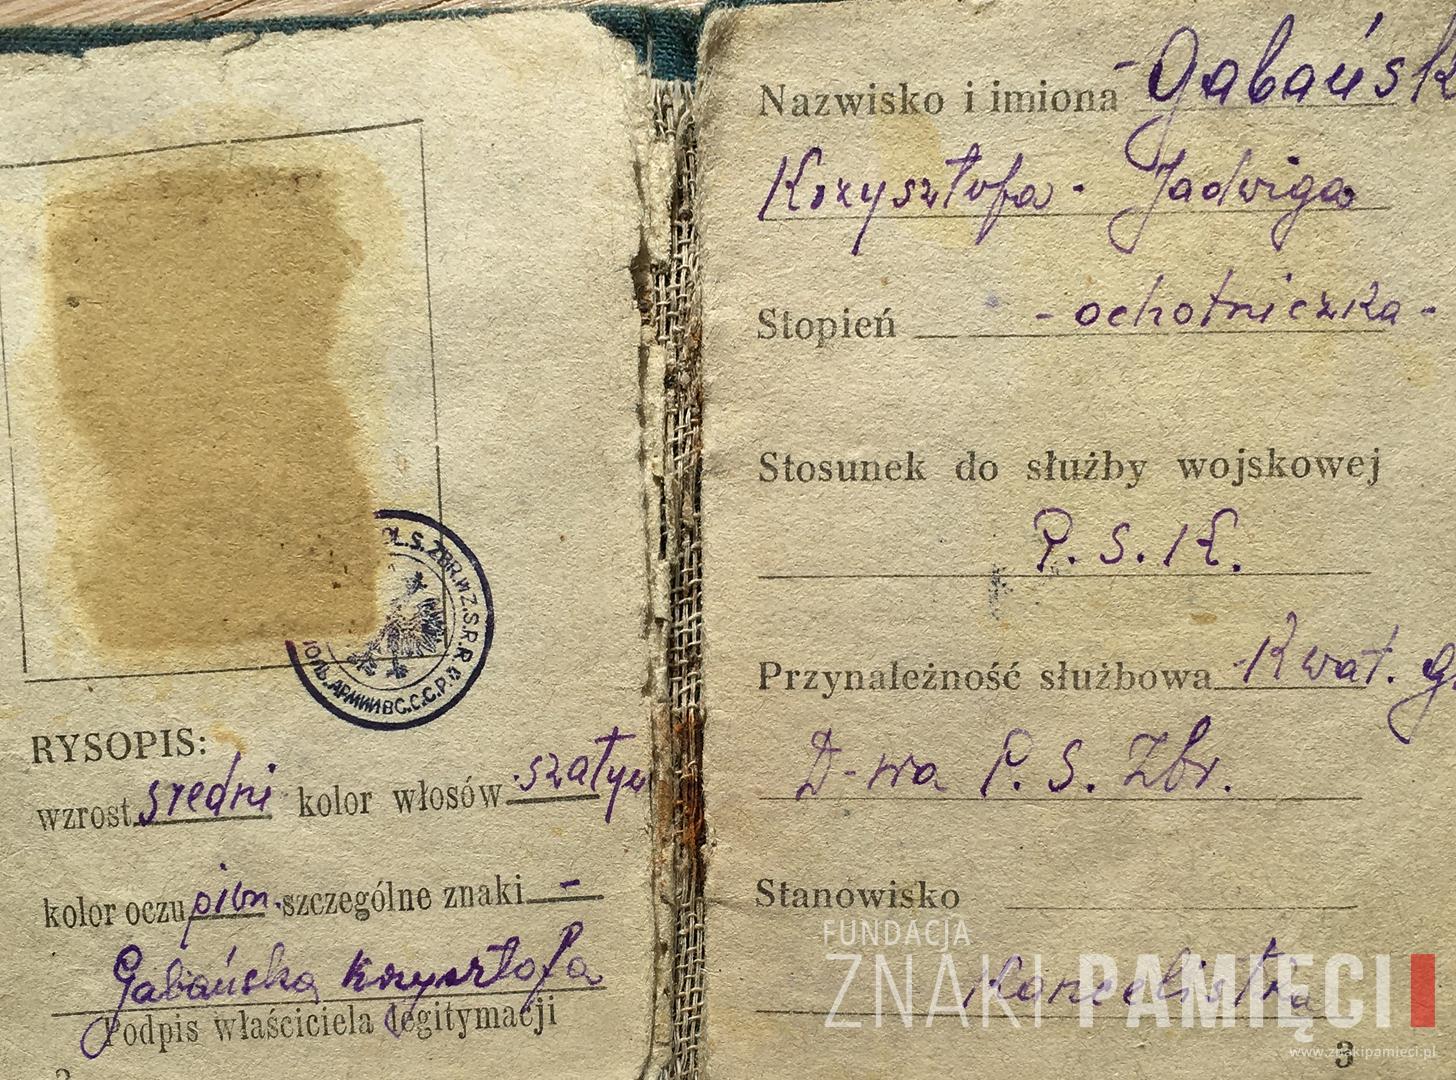 PL.S.ZBR.W Z.S.R.R.
ПОЛЬ.АРМИИ В С.С.С.Р.
RYSOPIS:
wzrost średni kolor włosów szatyn
kolor oczu piwn. szczególne znaki -
Gabańska Krzysztofa
Podpis właściciela legitymacji
Nazwisko i imiona - Gabańsk
Krzysztofa - Jadwiga
Stopień - ochotniczka -
Stosunek do służby wojskowej
P. S. K.
Przynależność służbowa Kwat. Gł
D-wa P. S. Zbr.
Stanowisko
Kancelistka
3
FUNDACJA
ZNAKI PAMIĘCI
www.znakipamieci.pl